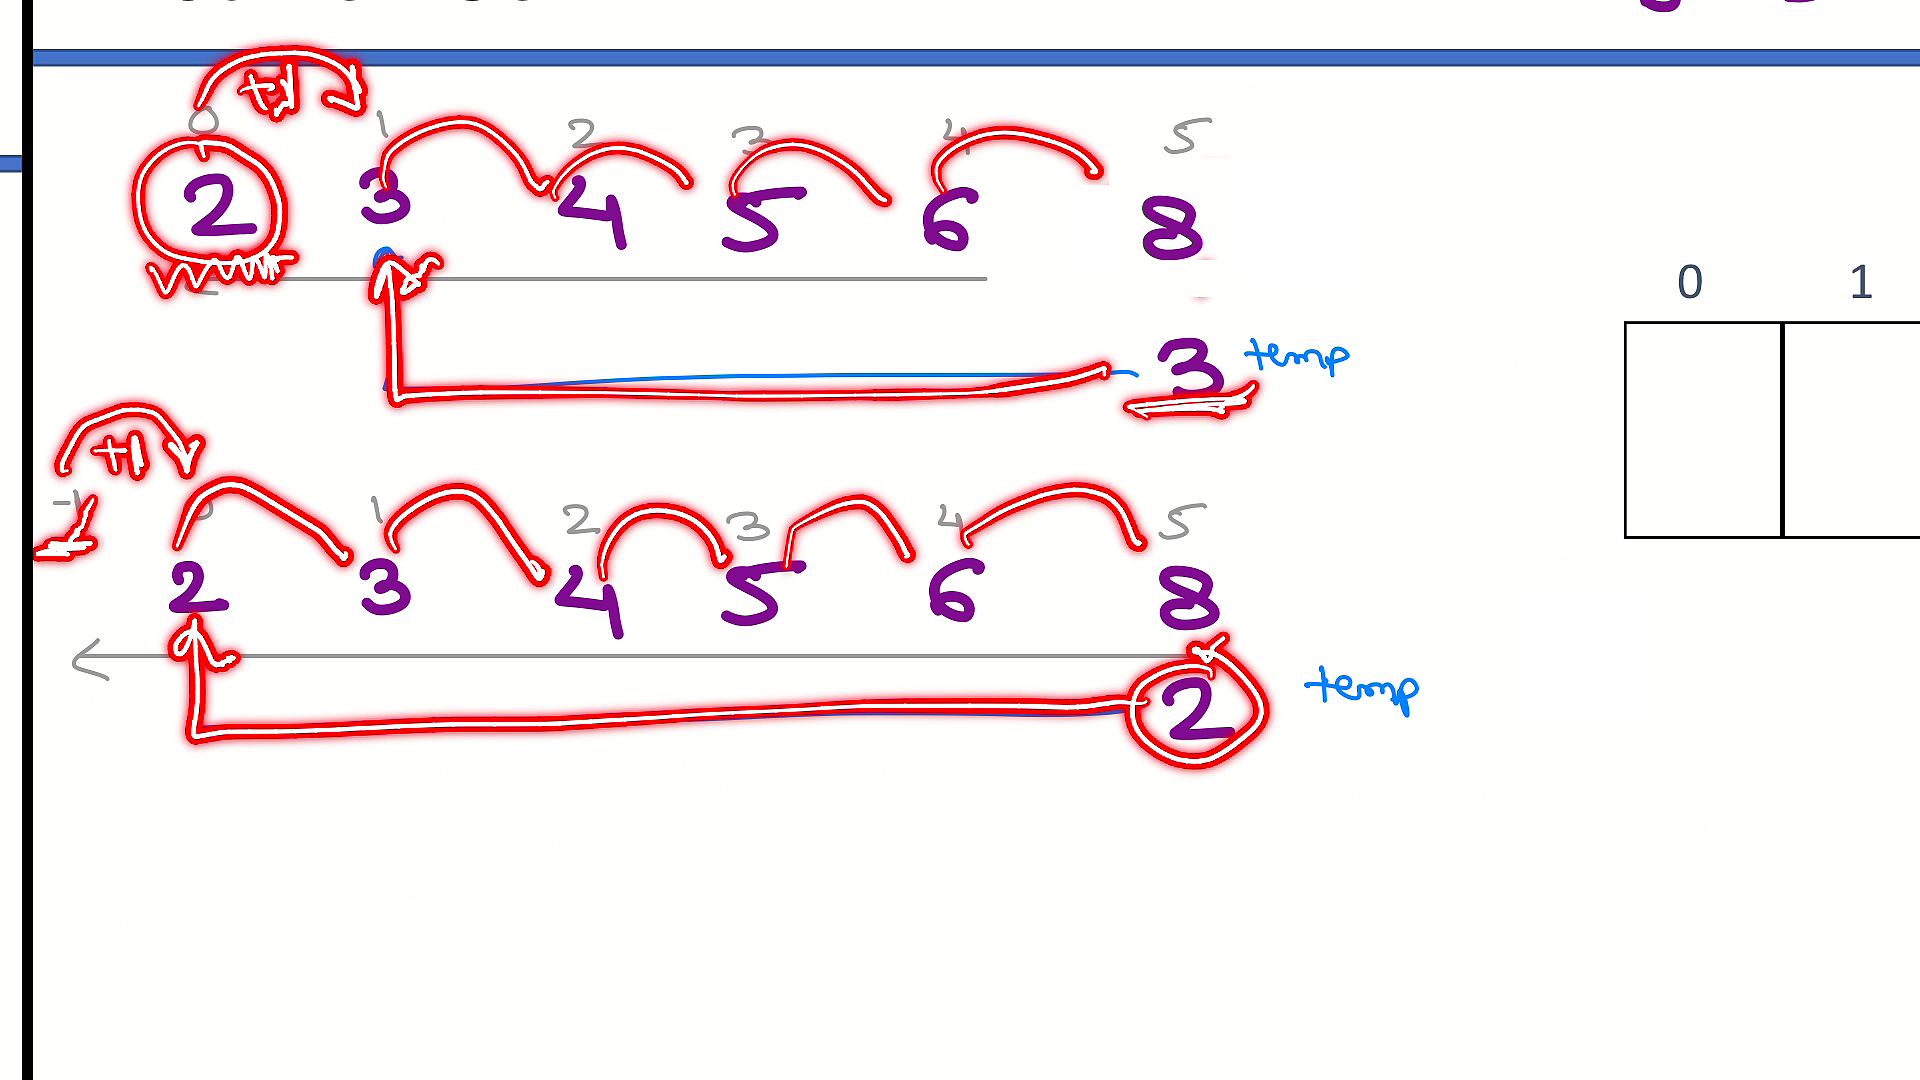 +1
0 1 2 3 4 5
2 3 4 5 6 8
0 1
3 temp
+1
-1 0 1 2 3 4 5
2 3 4 5 6 8
2 temp